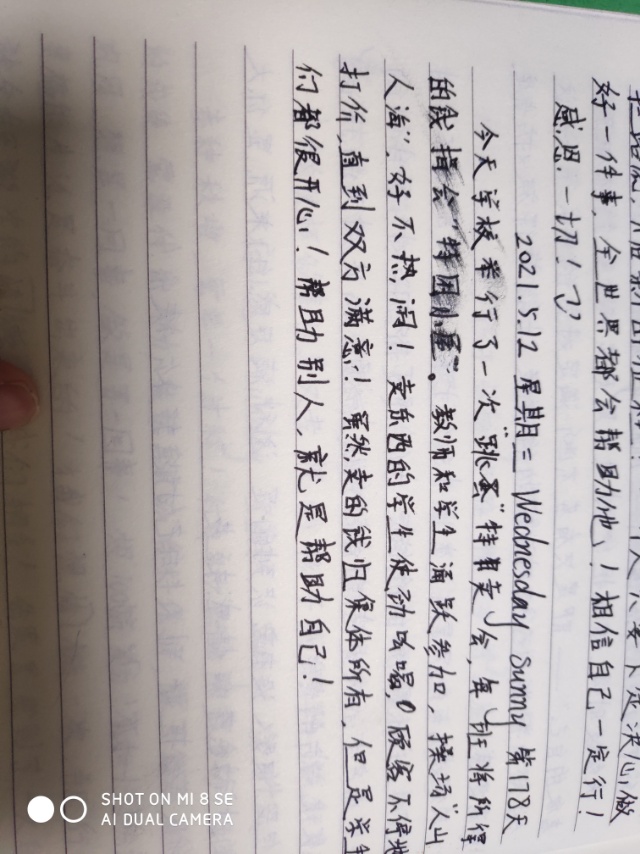 好一件事,全世界都会帮助他!相信自己一定行!
感恩一切!
2021.5.12 星期三 Wednesday Sunny 第178天
今天学校举行了一次"跳蚤"特卖会,每班将所得
的钱捐会"特困小屋"。教师和学生涌跃参加,操场"人山
人海",好不热闹!卖东西的学生使劲吆喝,顾客不停地
打价,直到双方满意!虽然卖的钱归集体所有,但是学生
们都很开心!帮助别人,就是帮助自己!
SHOT ON MI 8 SE
AI DUAL CAMERA